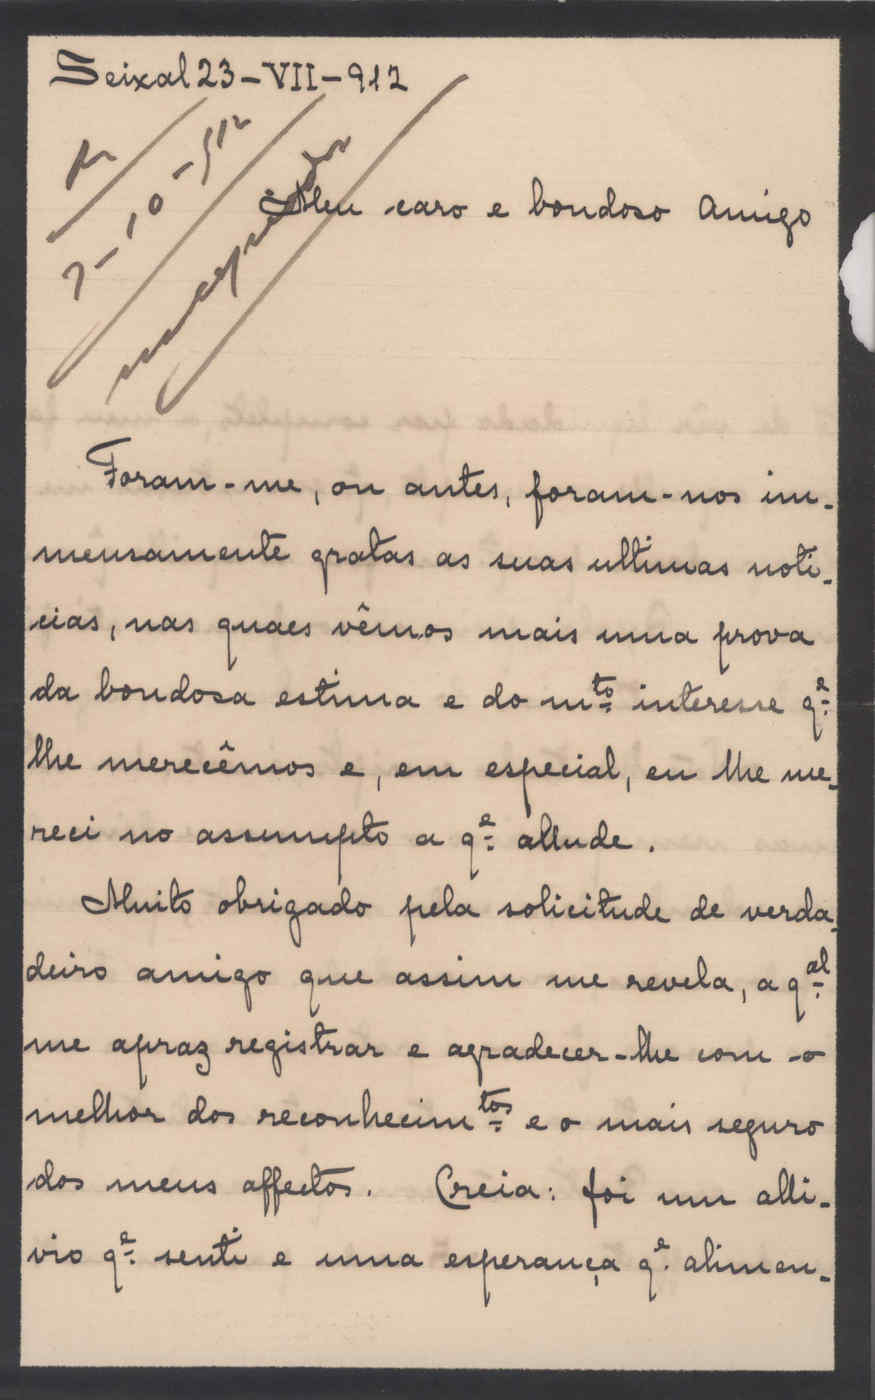 Seixal 23-VII-912
R
2-10-912
Meu caro e bondoso Amigo
Foram-me, ou antes, foram-nos im-
mensamente gratas as suas ultimas noti-
cias, nas quaes vêmos mais uma prova
da bondosa estima e do mto interesse qe.
lhe merecêmos e, em especial, eu lhe me-
reci no assumpto a qe. allude.
Muito obrigado pela solicitude de verda-
deiro amigo que assim me revela, a qal.
me apraz registrar e agradecer-lhe com o
melhor dos reconhecimtos e o mais seguro
dos meus affectos. Creia: foi um alli-
vio qe. senti e uma esperança qe. alimen-